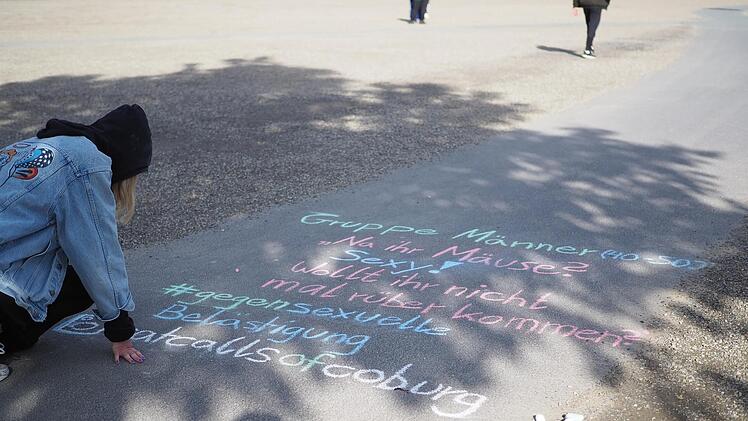 Gruppe Männer (40-50?)
„Na ihr Mäuse?
Sexy!
Wollt ihr nicht
mal rüber kommen?
#gegensexuelle
Belästigung
@catcallsofcoburg